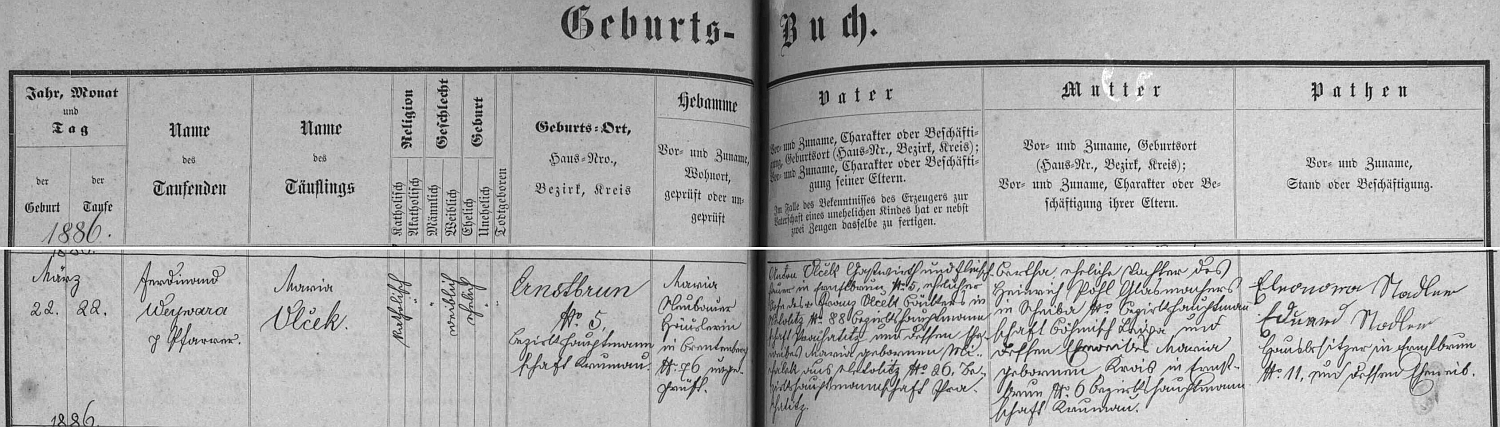 Geburts-Buch.
Jahr, Monat
und
Tag
der
Geburt
der
Taufe
1886.
Name
des
Taufenden
Name
des
Täuflings
Religion
Katholisch
Akatholisch
Geschlecht
Männlich
Weiblich
Geburt
Ehelich
Unehelich
Todtgeboren
Geburts-Ort,
Haus-Nro.,
Bezirk, Kreis
Hebamme
Vor- und Zuname,
Wohnort,
geprüft oder un-
geprüft
Vater
Vor- und Zuname, Charakter oder Beschäfti-
gung, Geburtsort (Haus-Nr., Bezirk, Kreis);
Vor- und Zuname, Charakter oder Beschäfti-
gung seiner Eltern.
Im Falle des Bekenntnisses des Erzeugers zur
Vaterschaft eines unehelichen Kindes hat er nebst
zwei Zeugen dasselbe zu fertigen.
Mutter
Vor- und Zuname, Geburtsort
(Haus-Nr., Bezirk, Kreis);
Vor- und Zuname, Charakter oder Be-
schäftigung ihrer Eltern.
Pathen
Vor- und Zuname,
Stand oder Beschäftigung.
März
22. 22.
Ferdinand
Weywara
Pfarrer.
Maria
Vlček.
katholisch
weiblich
ehelich
Ernstbrun
No 5
Bezirkshauptmann
schaft Krumau.
Maria
Neubauer
Häuslerin
in
No 76 unge-
prüft.
Anton Vlček Gastwirth und Fleisch
hauer in Ernstbrunn No 5, ehelicher
Sohn des Franz Vlček Häuslers in
No 88 Bezirkshauptmann
schaft Prachatitz und dessen Ehe
weibes Maria gebornen Mi-
chalek aus No 26, Be-
zirkshauptmannschaft Pra-
chatitz.
Bertha, eheliche Tochter des
Heinrich Pohl Glasmachers
in Scheiba No Bezirkshauptmann
schaft Böhmisch Leippa und
dessen Eheweibes Maria
gebornen Krois in Ernst-
brun No 6 Bezirkshauptmann
schaft Krumau.
Eleonora Stadler
Eduard Stadler
Hausbesitzer in Ernstbrun
No 11, und dessen Eheweib.
1886.